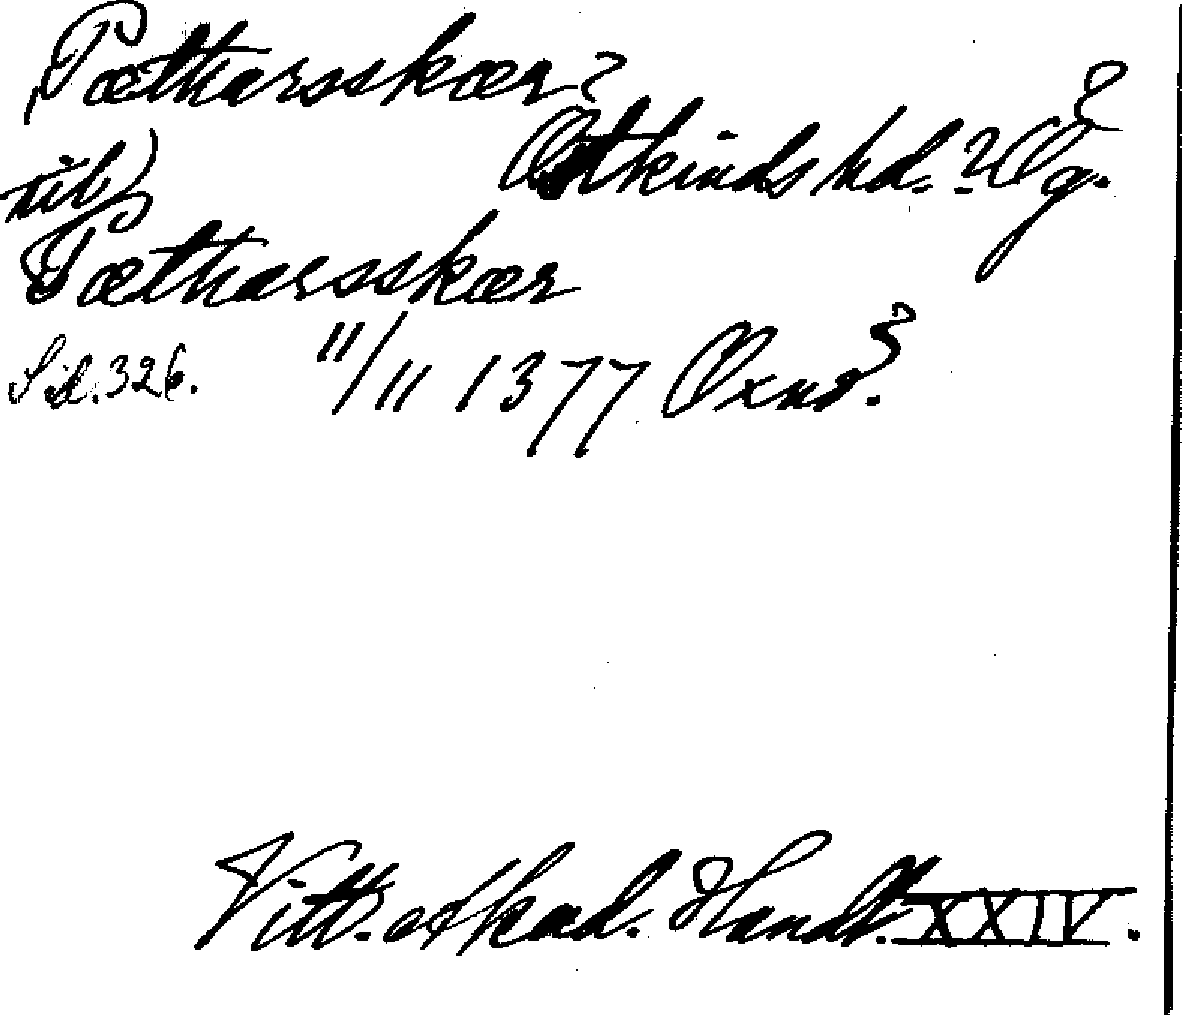 Pætharsskær?
Östkinds hd.? Ög.
till)
Pætharsskær
Sid. 326. 11/11 1377
Vitt. Akad. Handl. XXIV.